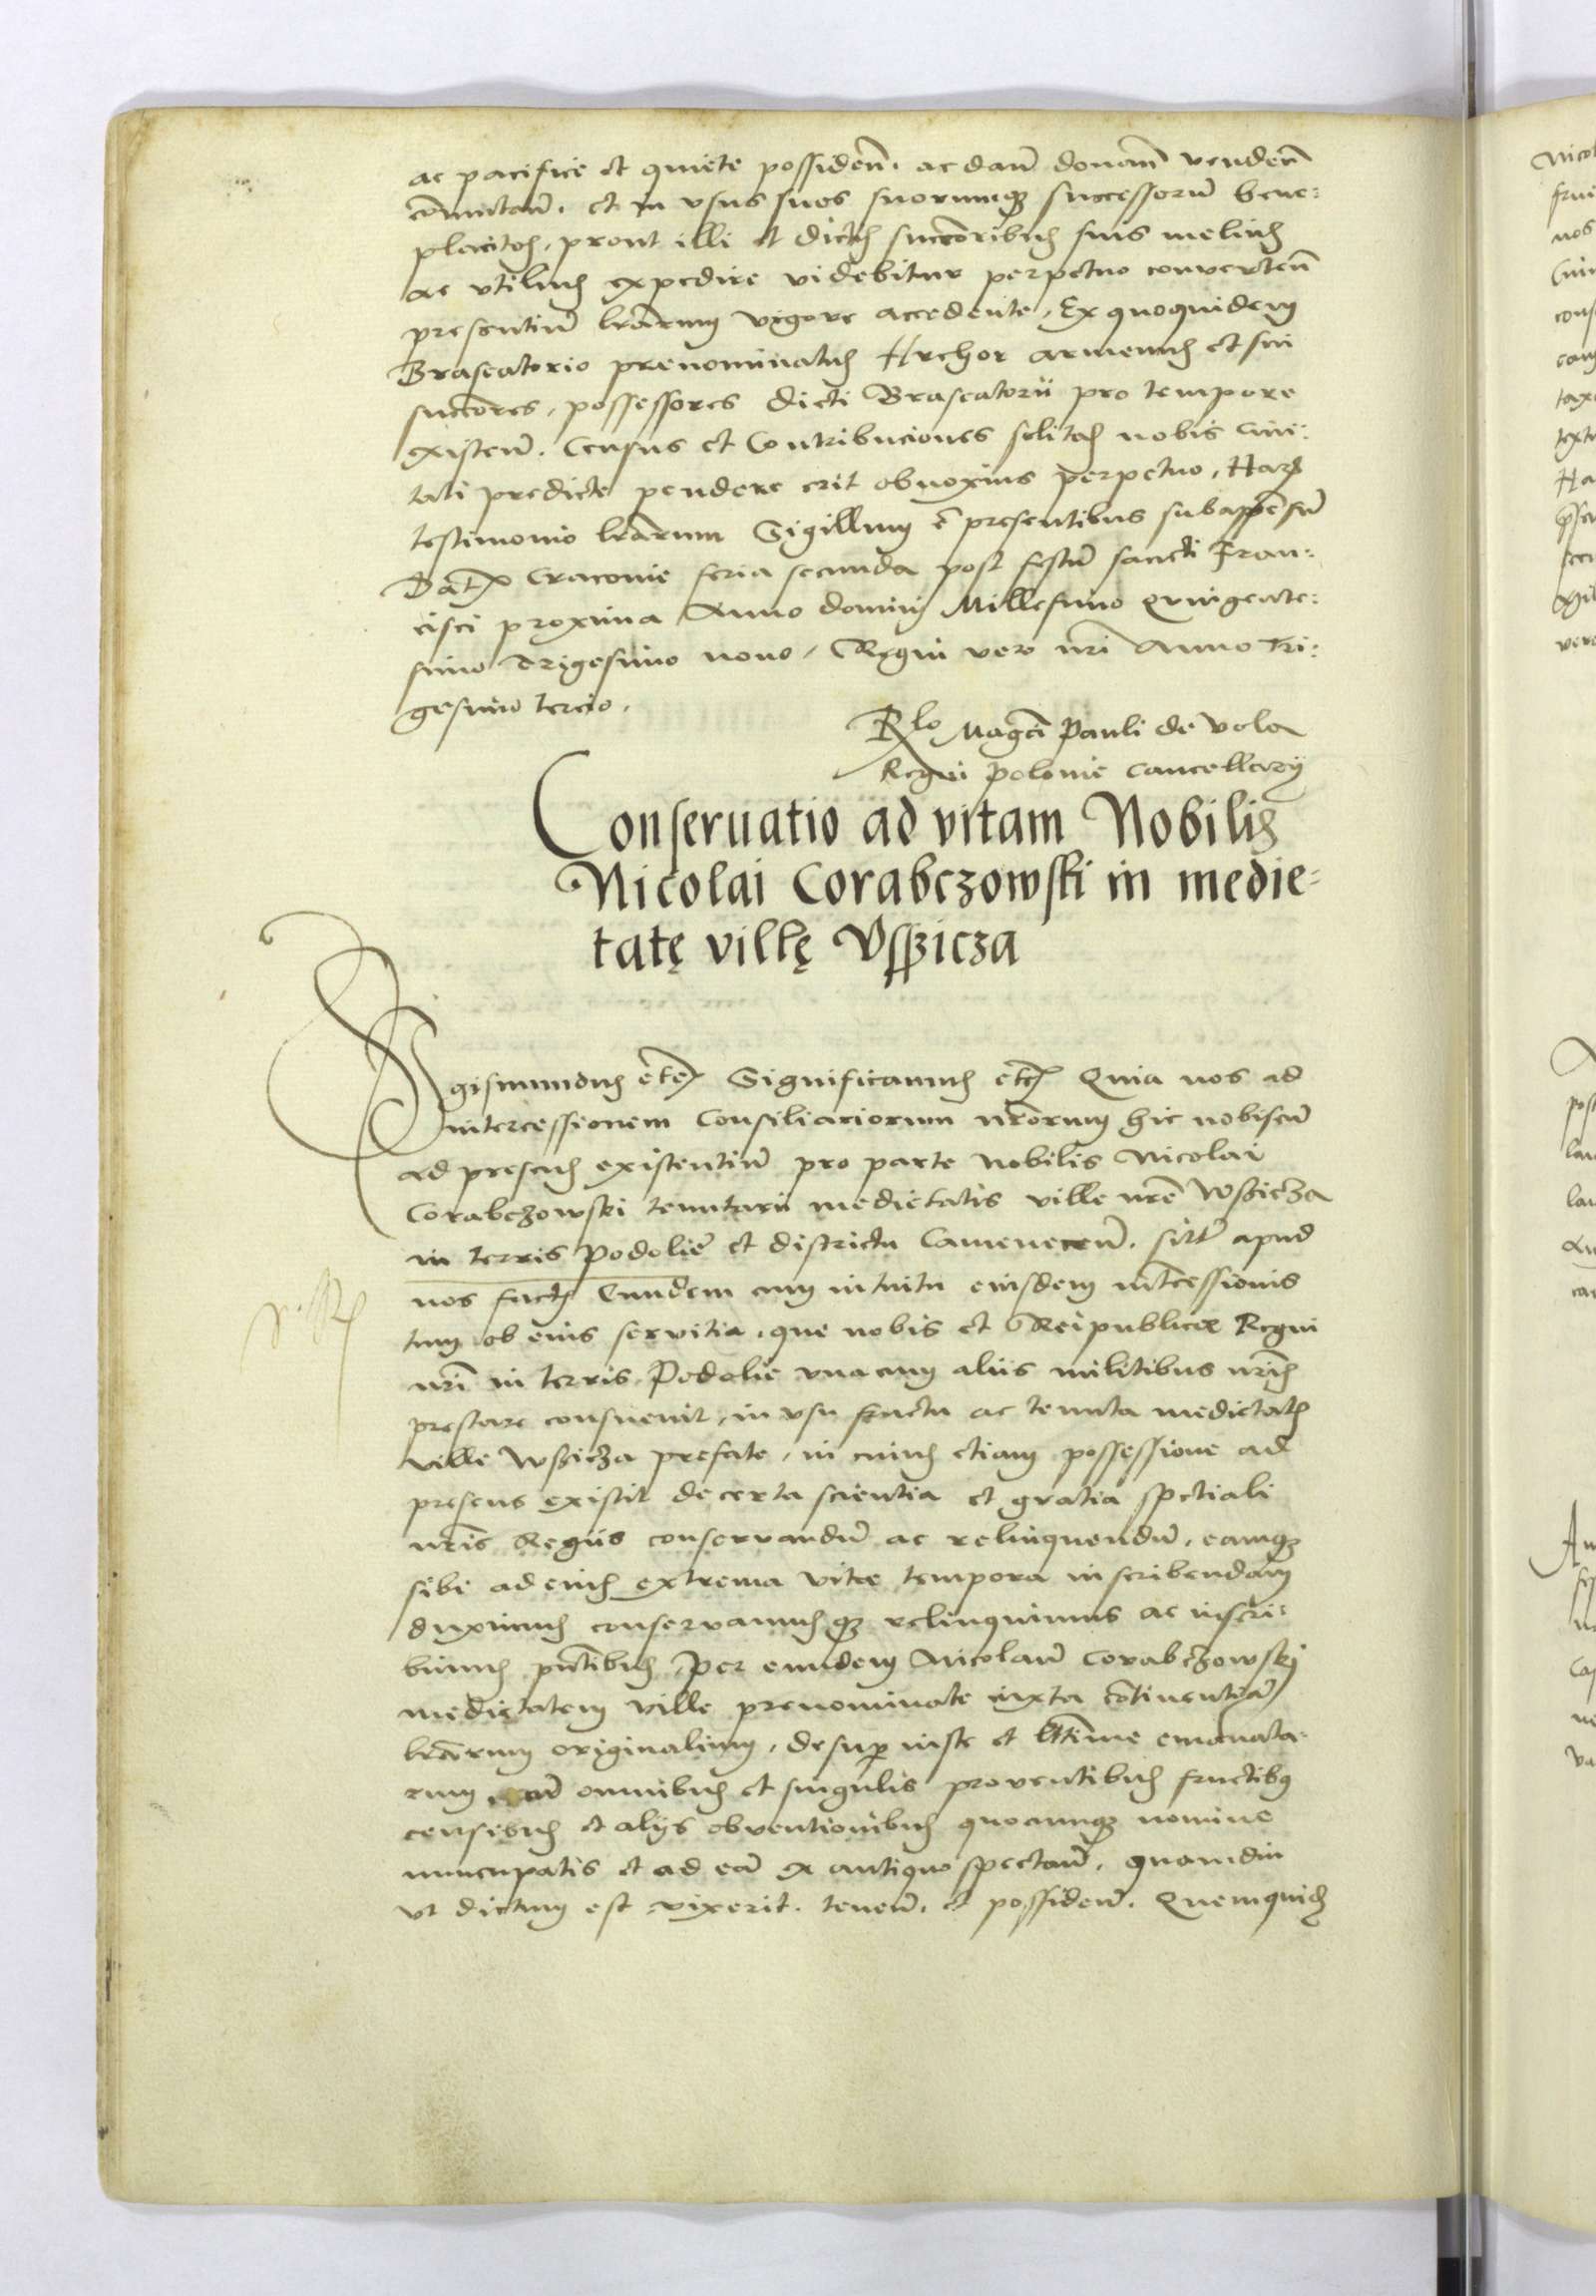 ac pacifice et quiete possiden̄. ac dan̄ donan̄ venden̄
com̄utan̄. et in vsus suos suorumq₃ successorū bene:
placitos, prout illi et dictis succoribus suis melius
ac vtilius expedire videbitur perpetuo converten̄
presentiū lrarum vigore accedente, Ex quoquidem
Braseatorio prenominatus Hrehor armenus et sui
succores, possessores dicti Braseatorii pro tempore
existen̄. Census et Contribuciones solitas nobis Civi:
tati predicte pendere erit obnoxius perpetuo, Harꝫ
testimonio lrarum Sigillum ē presentibus subappēsū
Datꝫ Cracovie feria secunda post festū sancti Fran:
cisci proxima Anno domini Millesimo quingente:
simo trigesimo nono, Regni vero nr̄i Anno Tri:
gesimo tercio.
Rlo Magci Pauli de vola
Regni polonie cancellarij
Conseruatio ad vitam Nobilis
Nicolai Corabczowski in medie-
tatę villę Vsszicza
Sigismundus etcꝫ Significamus etcꝫ Quia nos ad
intercessionem Consiliariorum nrorum hic nobiscū
ad presens existentiū pro parte nobilis Nicolai
Corabczowski tenutarii medietatis ville nrē Wssicza
in terris Podolie et districtu Camenecen̄. sitē apud
nos factis Eundem cum intuitu eiusdem intcessionis
tum ob eius servitia, que nobis et Reipublice Regni
nr̄i in terris Podolie vna cum aliis militibus nris
prestare consuevit, in vsu fructu ac tenuta medietatis
ville Wssicza prefate, in cuius etiam possessione ad
presens existit de certa scientia et gratia spetiali
nris Regiis conservandū ac relinquendū, eamq₃
sibi ad eius extrema vite tempora inscribendam
duximus conservamusq₃ relinquimus ac inscri:
bimus pntibus, Per eundem Nicolaū Corabczowski
medietatem ville prenominate iuxta cōtinentiā
lrarum originalium, desup iuste et lttime emanata-
rum, cū omnibus et singulis proventibus fructibꝫ
censibus et alijs obventionibus quocumq₃ nomine
nuncupatis et ad eā ex antiquo spectan̄. quamdiu
vt dictum est vixerit. tenen̄. et possiden̄. Quemquidꝫ